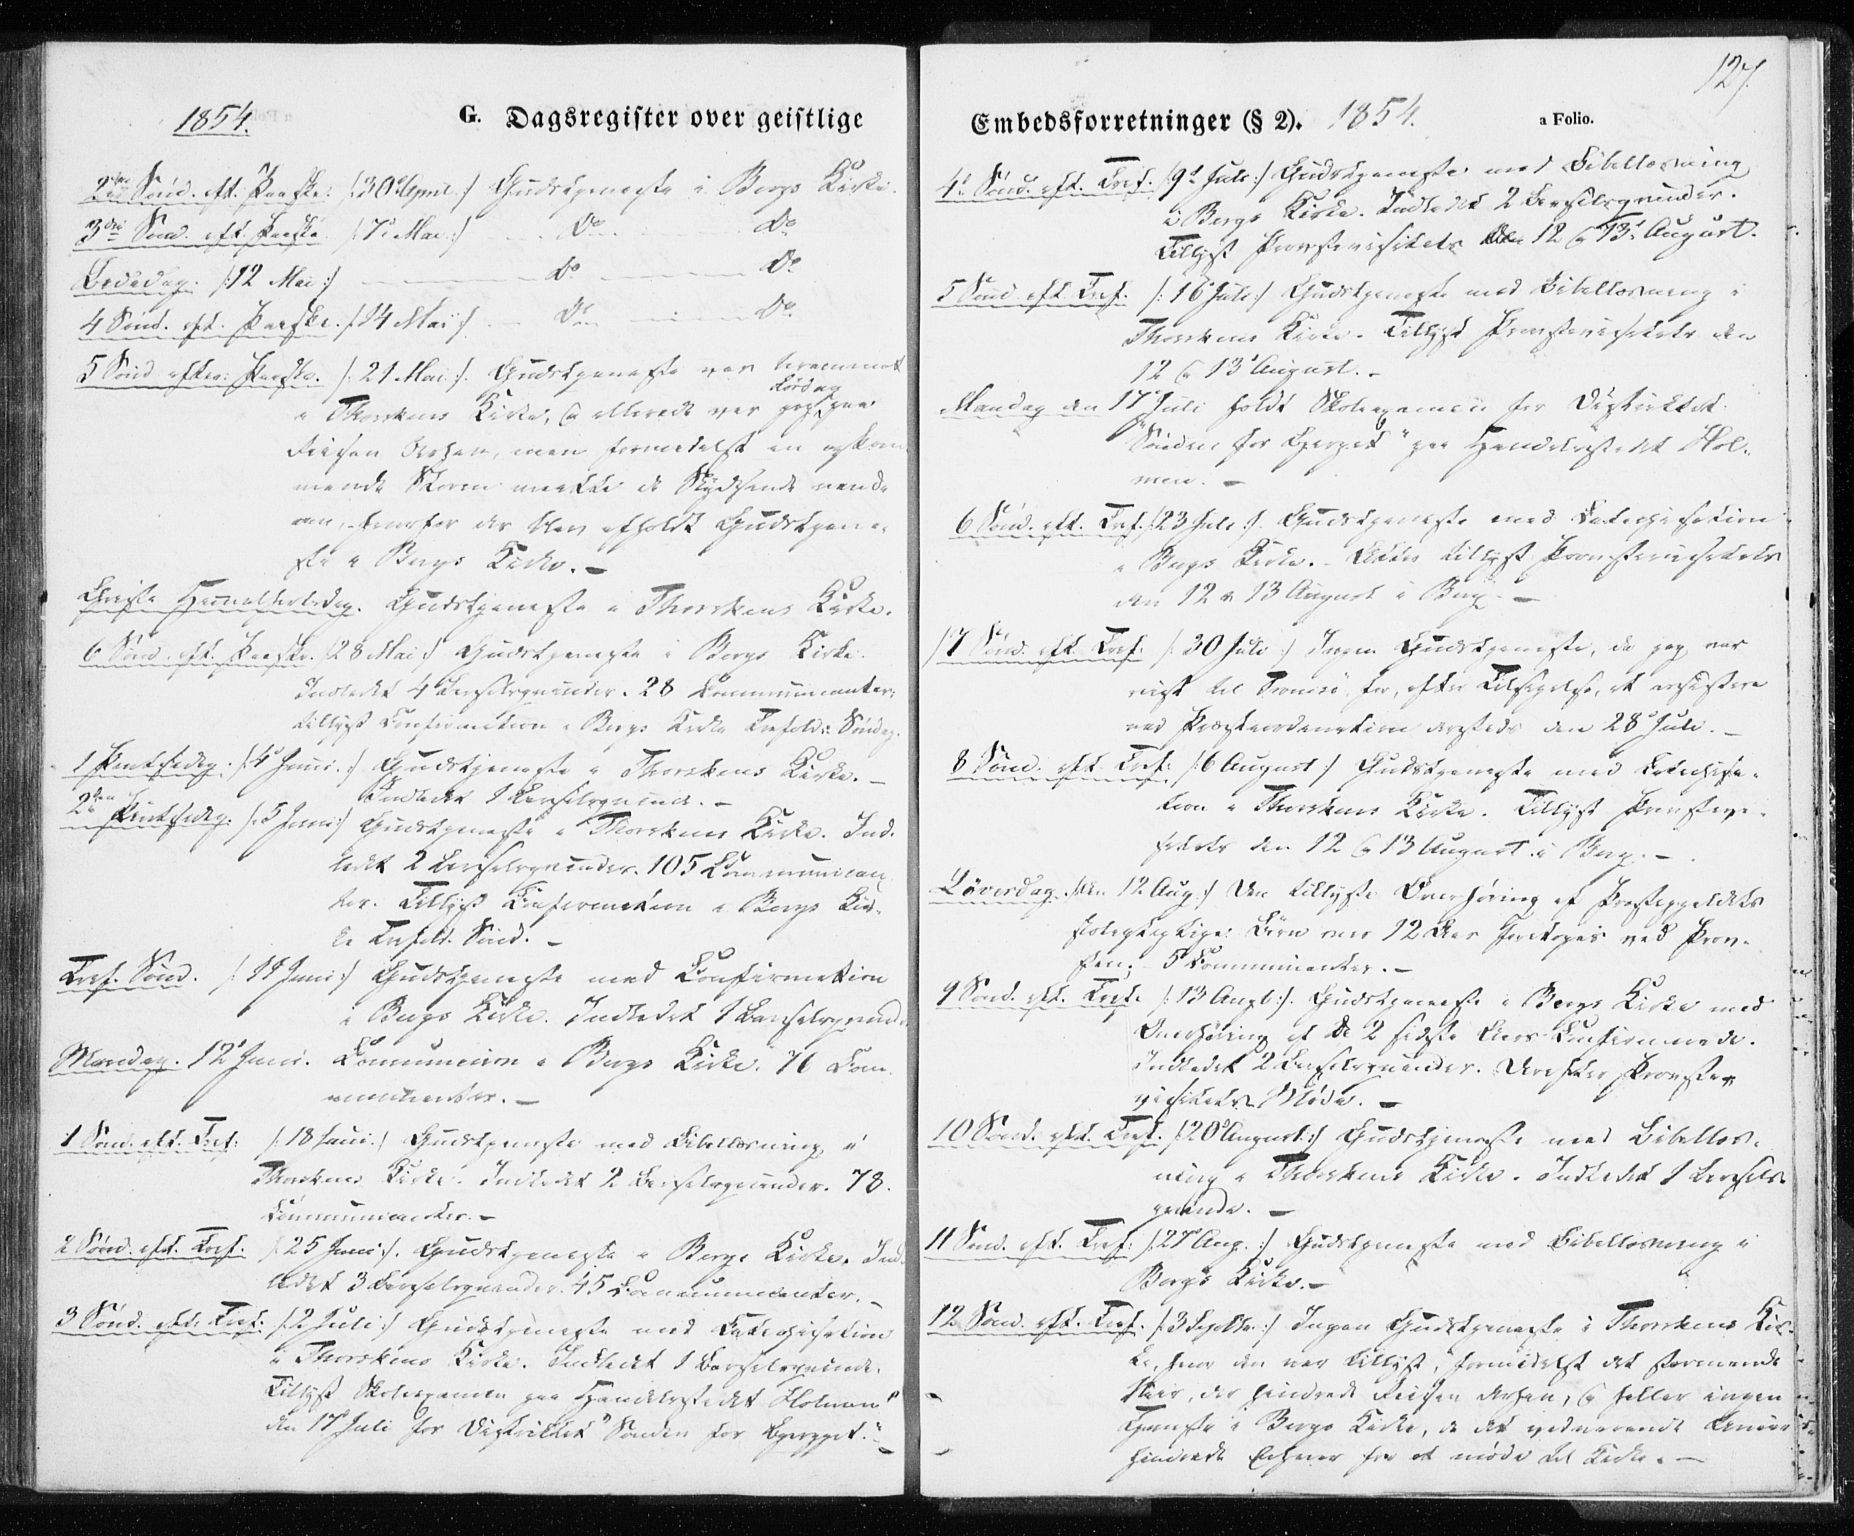 1854.
G. Dagsregister over geistlige
2den Sönd. eft. Paaske: /: 30 April :/ Gudstjeneste i Bergs Kirke.
3die Sönd. eft. Paaske. /: 7 Mai :/ Do Do
Bededag: /: 12 Mai :/ Do Do
4 Sönd. eft. Paaske. /: 14 Mai :/ Do Do
5 Sönd efter Paaske. /: 21 Mai :/. Gudstjeneste var berammet
Lördag
i Thorskens Kirke, og allerede var jeg paa
Reisen dertil, men formedelst en opkom-
mende Storm maatte de Skydsende vende
om, hvorfor der blev afholdt Gudstjene-
ste i Bergs Kirke. –
Christi Himmelfartsdag. Gudstjeneste i Thorskens Kirke.
6 Sönd. eft. Paaske. /: 28 Mai :/ Gudstjeneste i Bergs Kirke.
Indledet 4 Barselqvinder. 28 Communicanter;
tillyst Confirmation i Bergs Kirke Trefold: Söndag.
1 Pintsedag. /: 4 Juni :/ Gudstjeneste i Thorskens Kirke. –
Indledet 1 Barselqvinde. –
2den Pintsedag. /: 5 Juni :/ Gudstjeneste i Thorskens Kirke. Ind-
ledet 2 Barselqvinder. 105 Communican-
ter. Tillyst Confirmation i Bergs Kir-
ke Trefold. Sönd. –
Tref. Sönd. /: 11 Juni :/ Gudstjeneste med Confirmation
i Bergs Kirke. Indledet 1 Barselqvinde.
Mandag. 12 Juni. Communion i Bergs Kirke. 76 Com-
municanter. –
1 Sönd. eft. Tref: /: 18 Juni :/ Gudstjeneste med Bibellæsning i
Thorskens Kirke. Indledet 2 Barselqvinder. 78.
Communicanter. –
2 Sönd. eft. Tref. /: 25 Juni :/. Gudstjeneste i Bergs Kirke. Ind-
ledet 3 Barselqvinder. 45 Communicanter. –
3 Sönd. eft. Tref: /: 2 Juli :/ Gudstjeneste med Catechisation
i Thorskens Kirke. Indledet 1 Barselqvinde.
Tillyst Skoleexamen paa Handelsstedet Holmen
den 17 Juli for Districtet "Sönden for Bjerget." –
127.
Embedsforretninger (§ 2). 1854.
a Folio.
4de Sönd. eft. Tref. /: 9de Juli :/ Gudstjeneste med Bibellæsning
i Bergs Kirke. Indledet 2 Barselqvinder.
Tillyst Provstevisitats den 12 og 13 August.
5 Sönd eft. Tref. /: 16 Juli :/ Gudstjeneste med Bibellæsning i
Thorskens Kirke. Tillyst Provstevisitats den
12 og 13 August. –
Mandag den 17 Juli holdt Skoleexamen for Districtet
"Sönden for Bjerget" paa Handelsstedet Hol-
men. –
6 Sönd. eft. Tref. /: 23 Juli :/. Gudstjeneste med Catechisation
i Bergs Kirke. – tillyst Provstevisitats
den 12 & 13 August i Berg. –
7 Sönd. eft. Tref. /: 30 Juli :/ Ingen Gudstjeneste, da jeg var
reist til Tromsö for, efter Tilsigelse, at assistere
ved Præsteordination dersteds den 28 Juli. –
8 Sönd. eft. Tref: /: 6 August :/ Gudstjeneste med Catechisa-
tion i Thorskens Kirke. Tillyst Provstevi-
sitats den 12 og 13 August i Berg. –
Löverdag. /: den 12 Aug :/ Den tillyste Overhöring af Præstegjeldets
skolepligtige Börn over 12 Aar foretoges ved Prov-
sten; – 5 Communicanter. –
9 Sönd. eft. Tref. /: 13 Augt :/. Gudstjeneste i Bergs Kirke med
Overhöring af de 2 sidste Aars Confirmerede.
Indledet 2 Barselqvinder. Derefter Provste-
visitats Möde. –
10 Sönd. eft. Tref. /: 20 August :/ Gudstjeneste med Bibellæs-
ning i Thorskens Kirke. Indledet 1 Barsels-
qvinde. –
11 Sönd. eft. Tref: /: 27 Aug. :/ Gudstjeneste med Bibellæsning i
Bergs Kirke. –
12 Sönd. eft. Tref. /: 3 Septbr. :/ Ingen Gudstjeneste i Thorskens Kir-
ke, hvor den var tillyst, formedelst det stormende
Veir, der hindrede Reisen dertil, og heller ingen
Tjeneste i Bergs Kirke, da det vedvarende Uveir
hindrede Enhver for at möde til Kirke. –